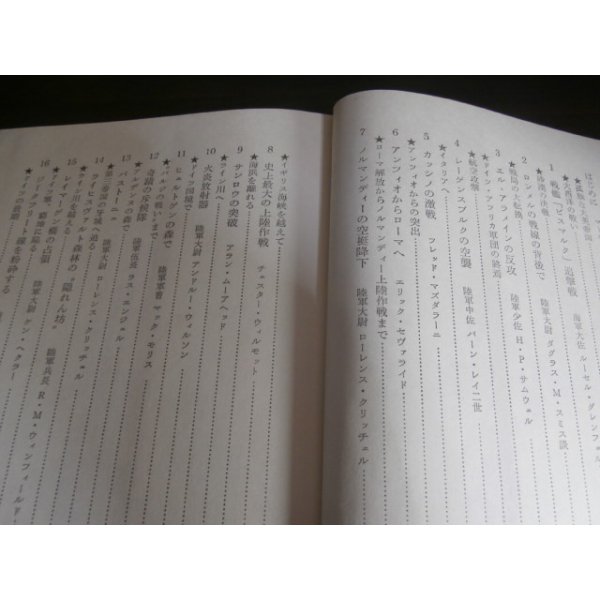 はじめに
★孤独な大英帝国
★大西洋の戦い
1 戦艦「ビスマルク」追撃戦 海軍大佐 ルーセル・グレンフェル
★砂漠の決戦
2 ロンメルの戦線の背後で 陸軍大尉 ダグラス・M・スミス談
★戦局の大転換
3 エル・アラメインの反攻 陸軍少佐 H・P・サムウェル
★ドイツ・アフリカ軍団の終焉
★航空攻勢
4 レーゲンスブルクの空襲 陸軍中佐 バーン・レイ二世
★イタリアへ
5 カッシノの激戦 フレッド・マズダラーニ
★アンツィオからの突出
6 アンツィオからローマへ エリック・セヴァライド
★ローマ解放からノルマンディー上陸作戦まで
7 ノルマンディーの空挺降下 陸軍大尉 ローレンス・クリッチェル
★イギリス海峡を越えて
8 史上最大の上陸作戦 チェスター・ウィルモット
★海浜を離れる
9 サンロウの突破 アラン・ムーアヘッド
★ライン川へ
10 火炎放射器 陸軍大尉 アンドルー・ウィルソン
★ドイツ国境で
11 ヒュルトゲンの森で 陸軍軍曹 マック・モリス
★バルジの戦いまで
12 奇蹟の斥候隊 陸軍伍長 ラス・エンジェル
★アルデンヌの森で
13 バストーニュ 陸軍大尉 ローレンス・クリッチェル
★第三帝国の牙城へ迫る
14 ライヒスヴァルト森林の"隠れん坊" 陸軍兵長 R・M・ウィンフィールド
★ライン川を越える
15 レイマーゲン橋の占領 陸軍大尉 ケン・ヘクラー
★ドイツ軍、窮地に陥る
16 ジークフリート線を粉砕する
★ドイツの崩壊